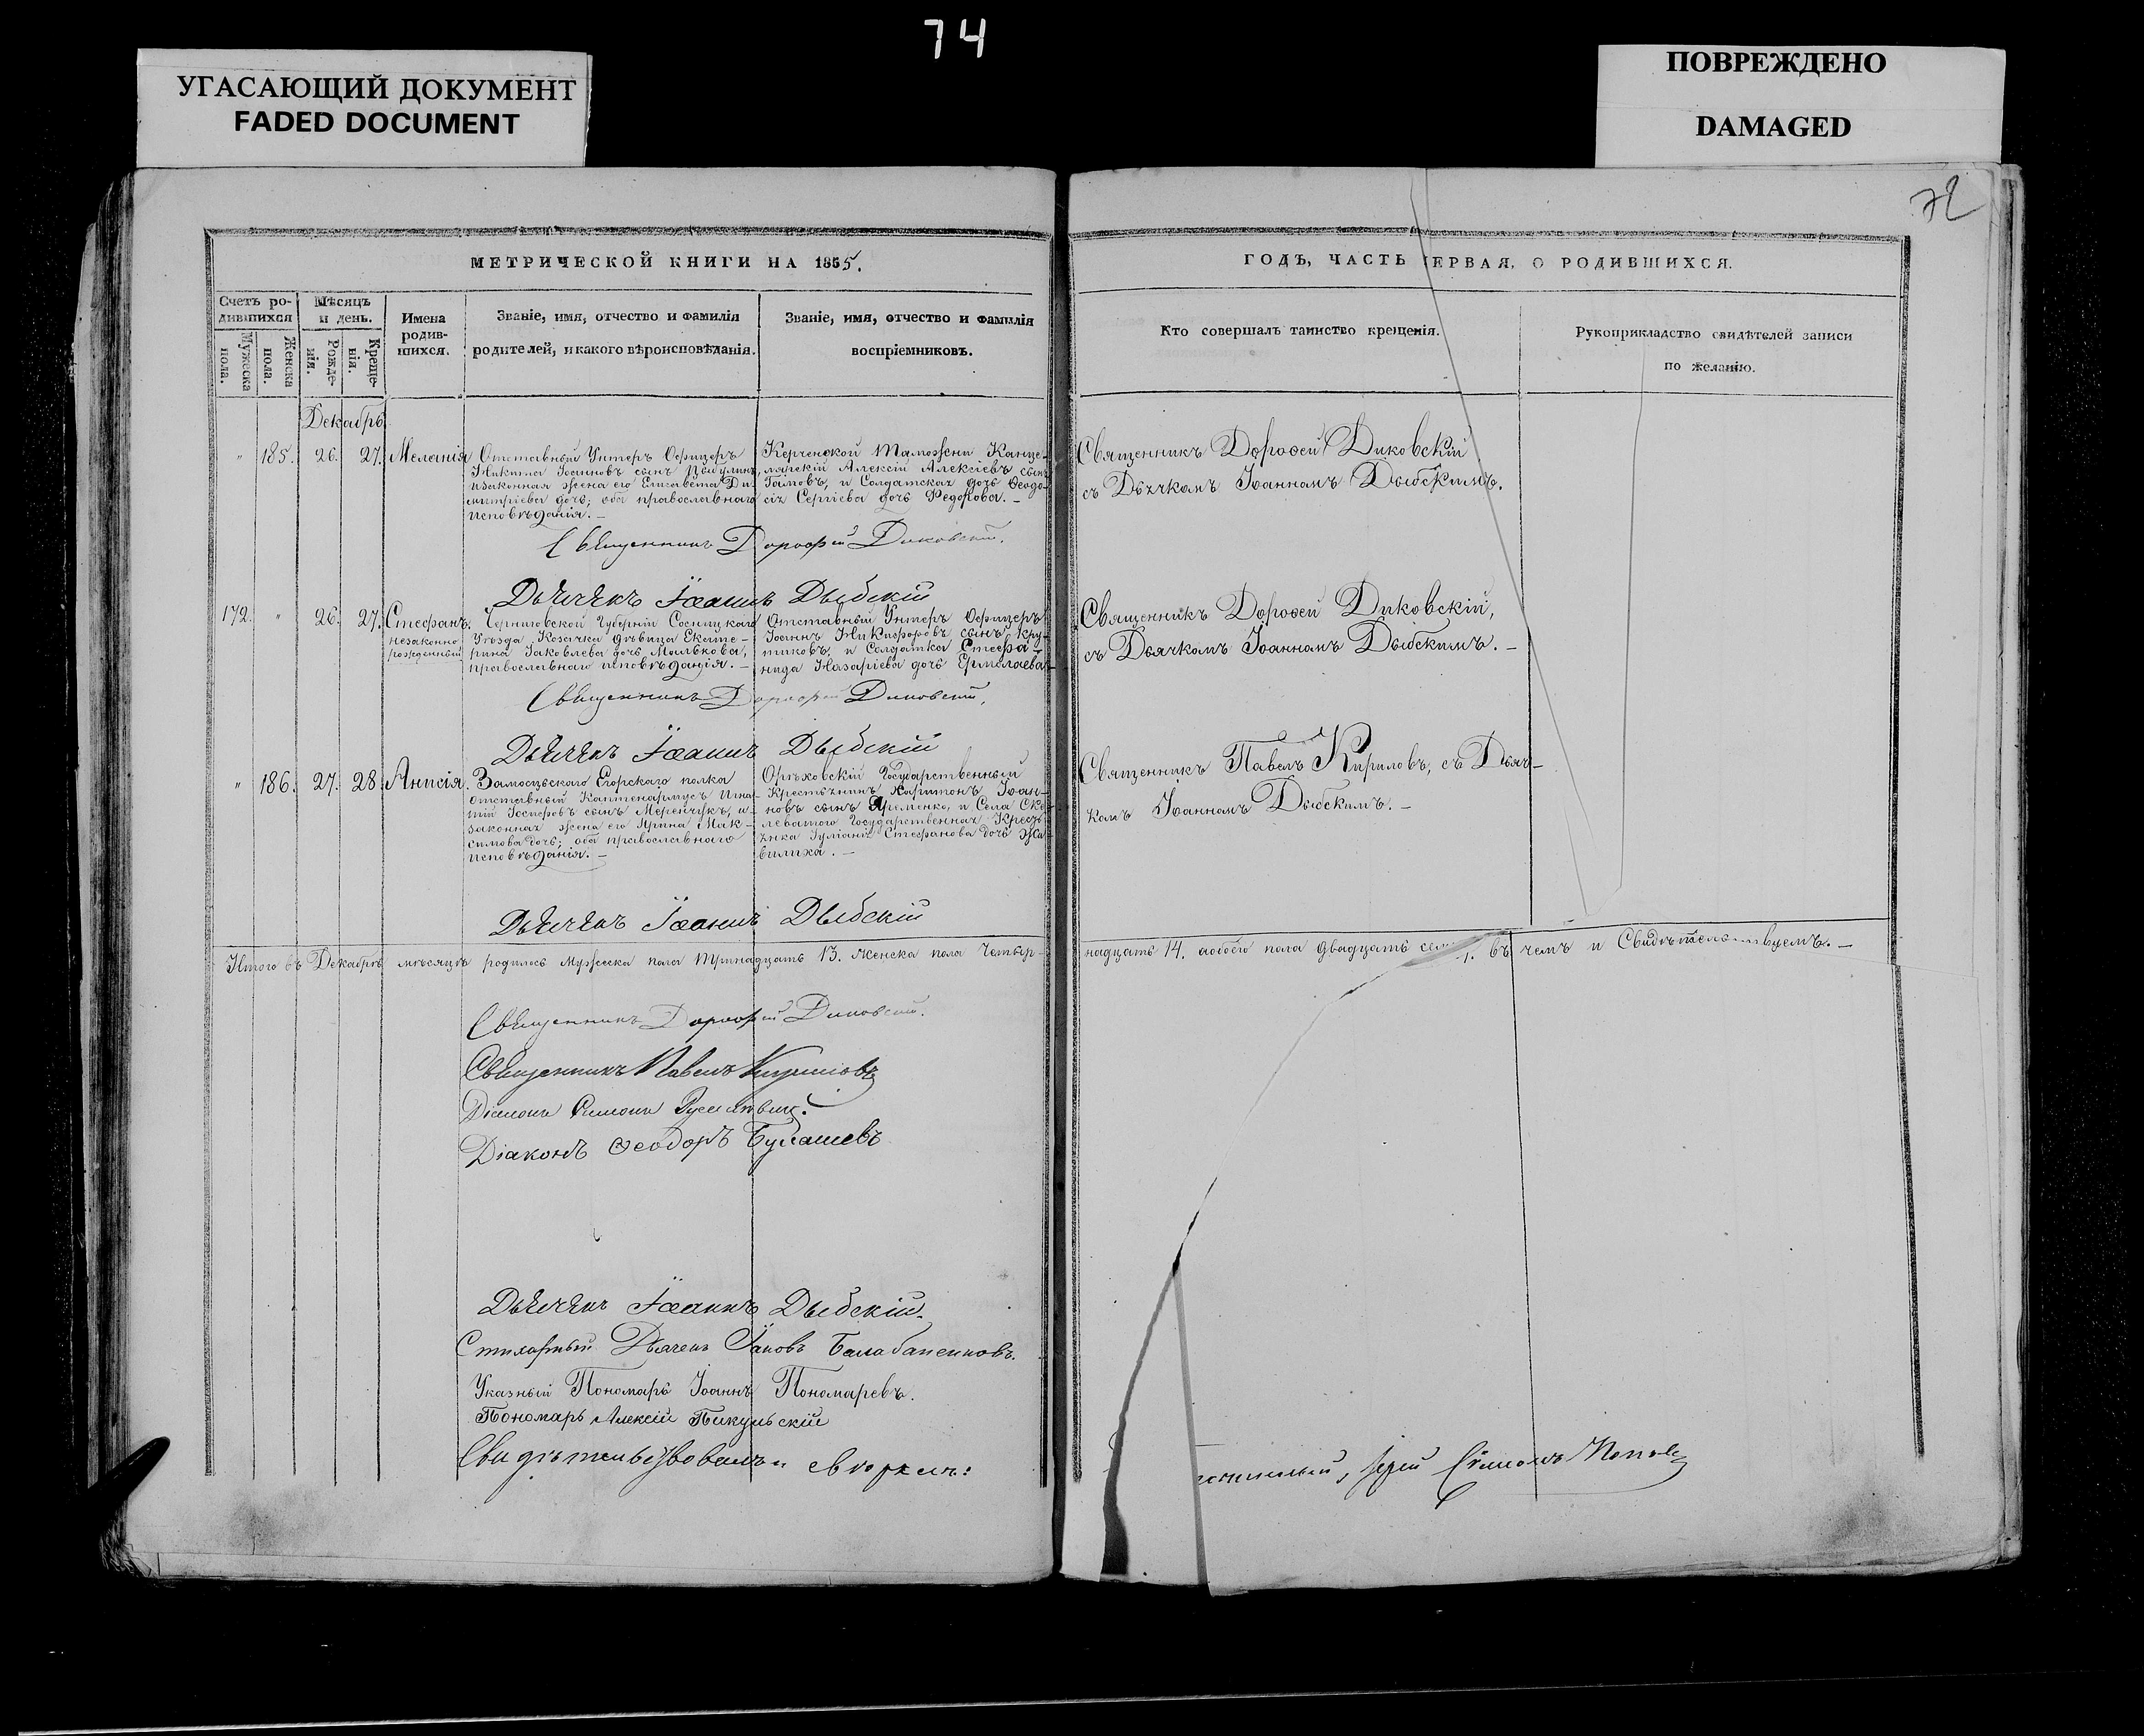 74
УГАСАЮЩИЙ ДОКУМЕНТ
FADED DOCUMENT
ПОВРЕЖДЕНО
DAMAGED
72
МЕТРИЧЕСКОЙ КНИГИ НА 1855.
Счетъ ро-
дившихся
Мужеска пола.
Женска пола.
Мѣсяцъ
и день.
Рожде-
нія.
Креще-
нія.
Имена
родив-
шихся.
Званіе, имя, отчество и фамилія
родителей, и какого вѣроисповѣданія.
Званіе, имя, отчество и фамилія
воспріемниковъ.
ГОДЪ, ЧАСТЬ ПЕРВАЯ, О РОДИВШИХСЯ.
Кто совершалъ таинство крещенія.
Рукоприкладство свидѣтелей записи
по желанію.
Декабрь
" 185. 26. 27. Меланія
Отставный Унтеръ Офицеръ
Никита Іоанновъ сынъ
и законная жена его Елисавета Ди-
митріева дочь; оба православнаго
исповѣданія. –
Керченской Таможни Канце-
лярскій Алексій Алексіевъ сынъ
Гамовъ, и Солдатская дочь Ѳеодо-
сія Сергіева дочь Федорова. –
Священникъ Дороѳей Диковскій
съ Дьячкомъ Іоанномъ Дыбскимъ.
Священникъ Дорофей Диковскій.
Дьячекъ Іоаннъ Дыбскій
172. " 26. 27. Стефанъ.
незаконно
рожденный
Черниговской Губерніи Сосницкаго
Уѣзда Козачка дѣвица Екате-
рина Іаковлева дочь Малькова,
православнаго исповѣданія. –
Отставный Унтеръ Офицеръ
Іоаннъ Никифоровъ сынъ Кру-
тиковъ, и Солдатка Стефа-
нида Назаріева дочь Ермолаева
Священникъ Дороѳей Диковскій,
съ Дьячкомъ Іоанномъ Дыбскимъ. –
Священникъ Дорофей Диковскій,
Дьячекъ Іоаннъ Дыбскій
" 186. 27. 28. Анисія.
Замосцьскаго Егорскаго полка
отставный Каптенармусъ Игна-
тій Іосифовъ сынъ Меренчукъ, и
законная жена его Ирина Мак-
симова дочь; оба православнаго
исповѣданія. –
Орѣховскій Государственный
Крестьянинъ Харитонъ Іоан-
новъ сынъ Яременко, и Села Ске-
леватого Государственная Кресть-
янка Іуліанія Стефанова дочь
Священникъ Павелъ Кириловъ, съ Дьяч-
комъ Іоанномъ Дыбскимъ. –
Дьячекъ Іоаннъ Дыбскій
Итого въ Декабрѣ мѣсяцѣ родилось Мужеска пола тринадцать 13. женска пола четыр-
надцать 14. обоего пола двадцать въ чемъ и Свидѣтельствуемъ. –
Священникъ Дорофей Диковскій.
Священникъ Павелъ Кириловъ
Діаконъ Симонъ
Діаконъ Ѳеодоръ Булашевъ
Дьячекъ Іоаннъ Дыбскій.
Стихарный Дьячекъ Іаковъ Балабаненковъ.
Указный Пономарь Іоаннъ Пономаревъ.
Пономарь Алексій Пикульскій
Свидѣтельствовалъ
Іерей Симонъ Поповъ